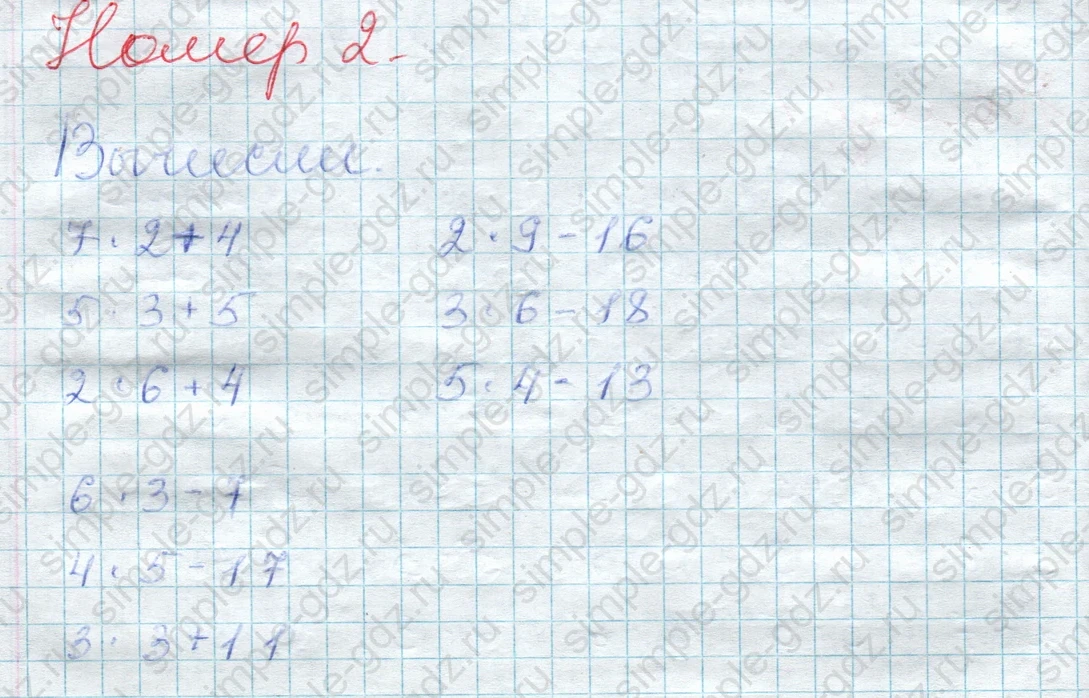 Номер 2.
Вычисли.
7 · 2 + 4 2 · 9 - 16
5 · 3 + 5 3 · 6 - 18
2 · 6 + 4 5 · 4 - 13
6 · 3 - 1
4 · 5 - 17
3 · 3 + 11
simple-gdz.ru